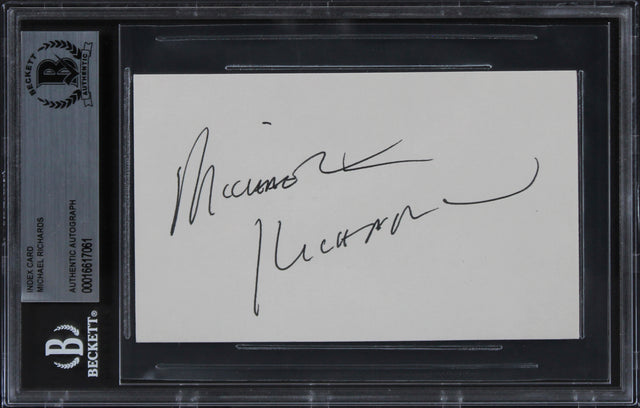 BECKETT
AUTHENTIC
INDEX CARD
MICHAEL RICHARDS
AUTHENTIC AUTOGRAPH
00016617061
BECKETT®
Michael
Richards